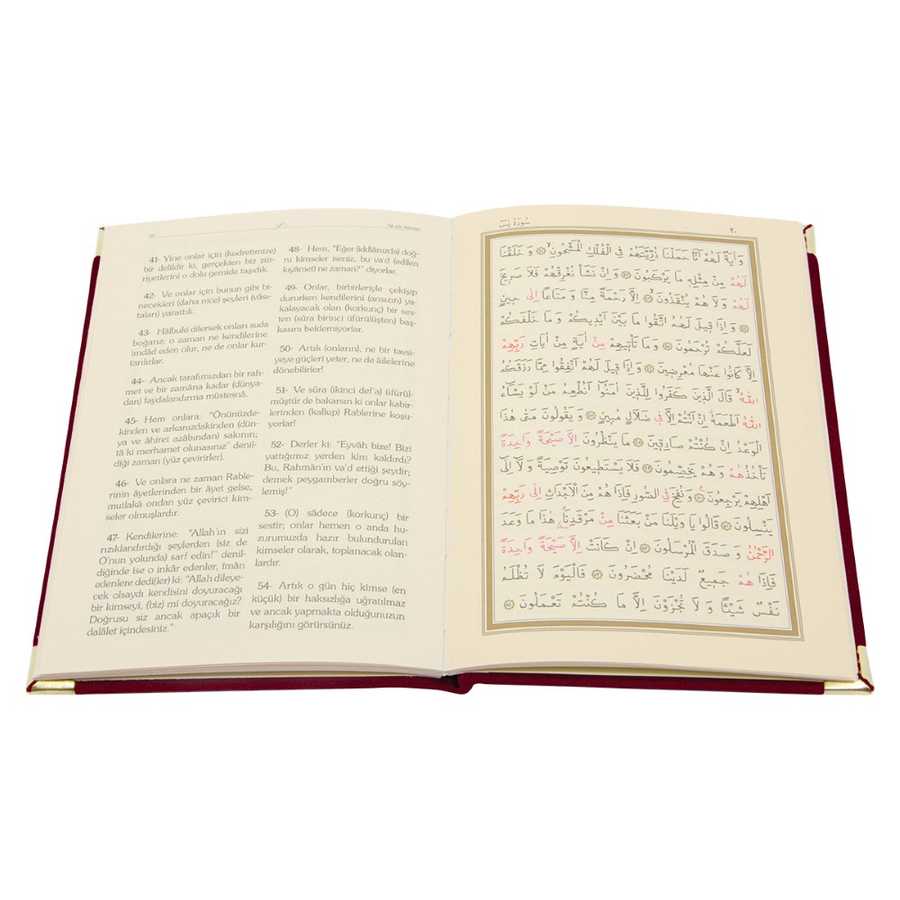 41- Yine onlar için (kudretimize)
bir delildir ki, gerçekten biz zür-
riyetlerini o dolu gemide taşıdık.
42- Ve onlar için bunun gibi bi-
necekleri (daha nice) şeyleri (vâsı-
taları) yarattık.
43- Hâlbuki dilersek onları suda
boğarız; o zaman ne kendilerine
imdâd eden olur, ne de onlar kur-
tarılırlar.
44- Ancak tarafımızdan bir rah-
met ve bir zamâna kadar (dünya-
dan) faydalandırma müstesnâ.
45- Hem onlara: "Önünüzde-
kinden ve arkanızdakinden (dün-
ya ve âhiret azâbından) sakının;
tâ ki merhamet olunasınız" denil-
diği zaman (yüz çevirirler).
46- Ve onlara ne zaman Rable-
rinin âyetlerinden bir âyet gelse,
mutlakâ ondan yüz çevirici kim-
seler olmuşlardır.
47- Kendilerine: "Allah'ın sizi
rızıklandırdığı şeylerden (siz de
O'nun yolunda) sarf edin!" denil-
diğinde ise o inkâr edenler, îmân
edenlere dedi(ler) ki: "Allah dileye-
cek olsaydı kendisini doyuracağı
bir kimseyi, (biz) mi doyuracağız?
Doğrusu siz ancak apaçık bir
dalâlet içindesiniz."
48- Hem, "Eğer (iddiânızda) doğ-
ru kimseler iseniz, bu va'd (edilen
kıyâmet) ne zaman?" diyorlar.
49- Onlar, birbirleriyle çekişip
dururken kendilerini (ansızın) ya-
kalayacak olan (korkunç) bir ses-
ten (sûra birinci üfürülüşten) baş-
kasını beklemiyorlar.
50- Artık (onların), ne bir tavsi-
yeye güçleri yeter, ne de âilelerine
dönebilirler!
51- Ve sûra (ikinci def'a) üfürül-
müştür de bakarsın ki onlar kabir-
lerinden (kalkıp) Rablerine koşu-
yorlar!
52- Derler ki: "Eyvâh bize! Bizi
yattığımız yerden kim kaldırdı?
Bu, Rahmân'ın va'd ettiği şeydir;
demek peygamberler doğru söy-
lemiş!"
53- (O) sâdece (korkunç) bir
sestir; onlar hemen o anda hu-
zurumuzda hazır bulundurulan
kimseler olarak, toplanacak olan-
lardır.
54- Artık o gün hiç kimse (en
küçük) bir haksızlığa uğratılmaz
ve ancak yapmakta olduğunuzun
karşılığını görürsünüz.
سُورَةُ يٰسٓ ٢٠
وَاٰيَةٌ لَهُمْ اَنَّا حَمَلْنَا ذُرِّيَّتَهُمْ فِي الْفُلْكِ الْمَشْحُونِ ۝ وَخَلَقْنَا
لَهُمْ مِنْ مِثْلِه۪ مَا يَرْكَبُونَ ۝ وَاِنْ نَشَأْ نُغْرِقْهُمْ فَلَا صَر۪يخَ
لَهُمْ وَلَا هُمْ يُنْقَذُونَ ۝ اِلَّا رَحْمَةً مِنَّا وَمَتَاعًا اِلٰى ح۪ينٍ
۝ وَاِذَا ق۪يلَ لَهُمُ اتَّقُوا مَا بَيْنَ اَيْد۪يكُمْ وَمَا خَلْفَكُمْ
لَعَلَّكُمْ تُرْحَمُونَ ۝ وَمَا تَأْت۪يهِمْ مِنْ اٰيَةٍ مِنْ اٰيَاتِ رَبِّهِمْ
اِلَّا كَانُوا عَنْهَا مُعْرِض۪ينَ ۝ وَاِذَا ق۪يلَ لَهُمْ اَنْفِقُوا مِمَّا رَزَقَكُمُ
اللّٰهُ قَالَ الَّذ۪ينَ كَفَرُوا لِلَّذ۪ينَ اٰمَنُٓوا اَنُطْعِمُ مَنْ لَوْ يَشَٓاءُ
اللّٰهُ اَطْعَمَهُ اِنْ اَنْتُمْ اِلَّا ف۪ي ضَلَالٍ مُب۪ينٍ ۝ وَيَقُولُونَ مَتٰى هٰذَا
الْوَعْدُ اِنْ كُنْتُمْ صَادِق۪ينَ ۝ مَا يَنْظُرُونَ اِلَّا صَيْحَةً وَاحِدَةً
تَأْخُذُهُمْ وَهُمْ يَخِصِّمُونَ ۝ فَلَا يَسْتَط۪يعُونَ تَوْصِيَةً وَلَٓا اِلٰٓى
اَهْلِهِمْ يَرْجِعُونَ ۝ وَنُفِخَ فِي الصُّورِ فَاِذَا هُمْ مِنَ الْاَجْدَاثِ اِلٰى رَبِّهِمْ
يَنْسِلُونَ ۝ قَالُوا يَا وَيْلَنَا مَنْ بَعَثَنَا مِنْ مَرْقَدِنَا هٰذَا مَا وَعَدَ
الرَّحْمٰنُ وَصَدَقَ الْمُرْسَلُونَ ۝ اِنْ كَانَتْ اِلَّا صَيْحَةً وَاحِدَةً
فَاِذَا هُمْ جَم۪يعٌ لَدَيْنَا مُحْضَرُونَ ۝ فَالْيَوْمَ لَا تُظْلَمُ
نَفْسٌ شَيْـًٔا وَلَا تُجْزَوْنَ اِلَّا مَا كُنْتُمْ تَعْمَلُونَ ۝